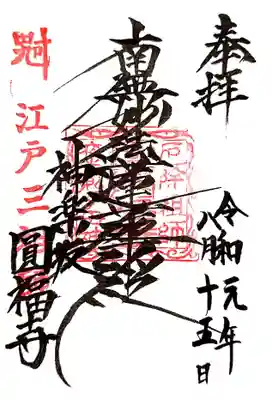 奉拝
令和元年
八月十五日
南無妙法蓮華経
厄除祖師
神楽坂
圓福寺
江戸三